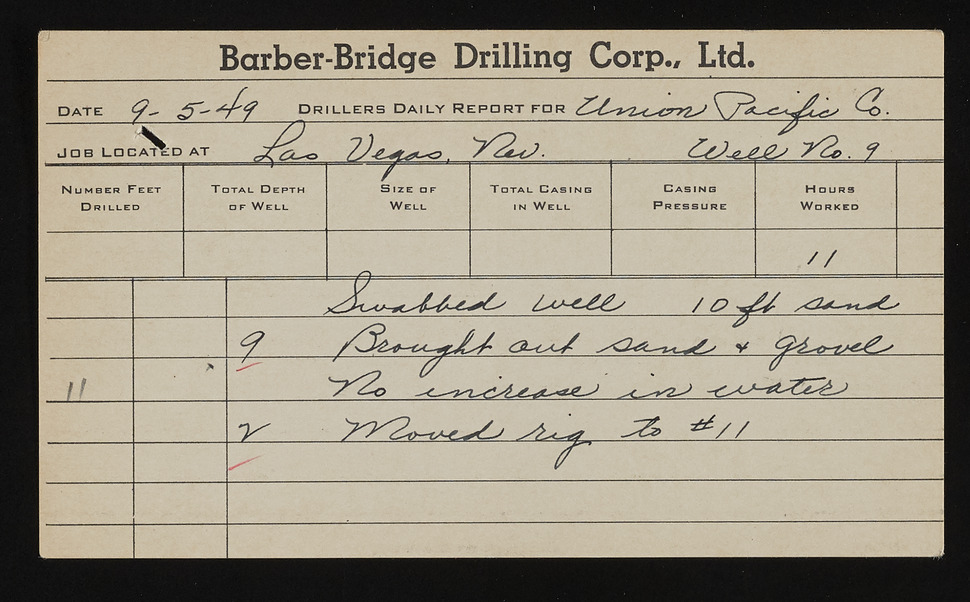 Barber-Bridge Drilling Corp., Ltd.
DATE 9-5-49 DRILLERS DAILY REPORT FOR Union Pacific Co.
JOB LOCATED AT Las Vegas, Nev. Well No. 9
NUMBER FEET DRILLED TOTAL DEPTH OF WELL SIZE OF WELL TOTAL CASING IN WELL CASING PRESSURE HOURS WORKED
11
Swabbed well 10 ft sand
9 Brought out sand & grovel
11 No increase in water
2 Moved rig to #11